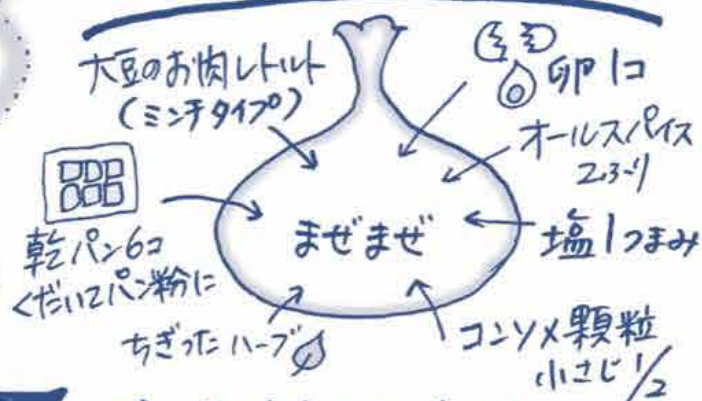 大豆のお肉レトルト
(ミンチタイプ)
卵1コ
オールスパイス
2,3ふり
乾パン6コ
くだいてパン粉に
まぜまぜ
塩1つまみ
ちぎったハーブ
コンソメ顆粒
小さじ1/2